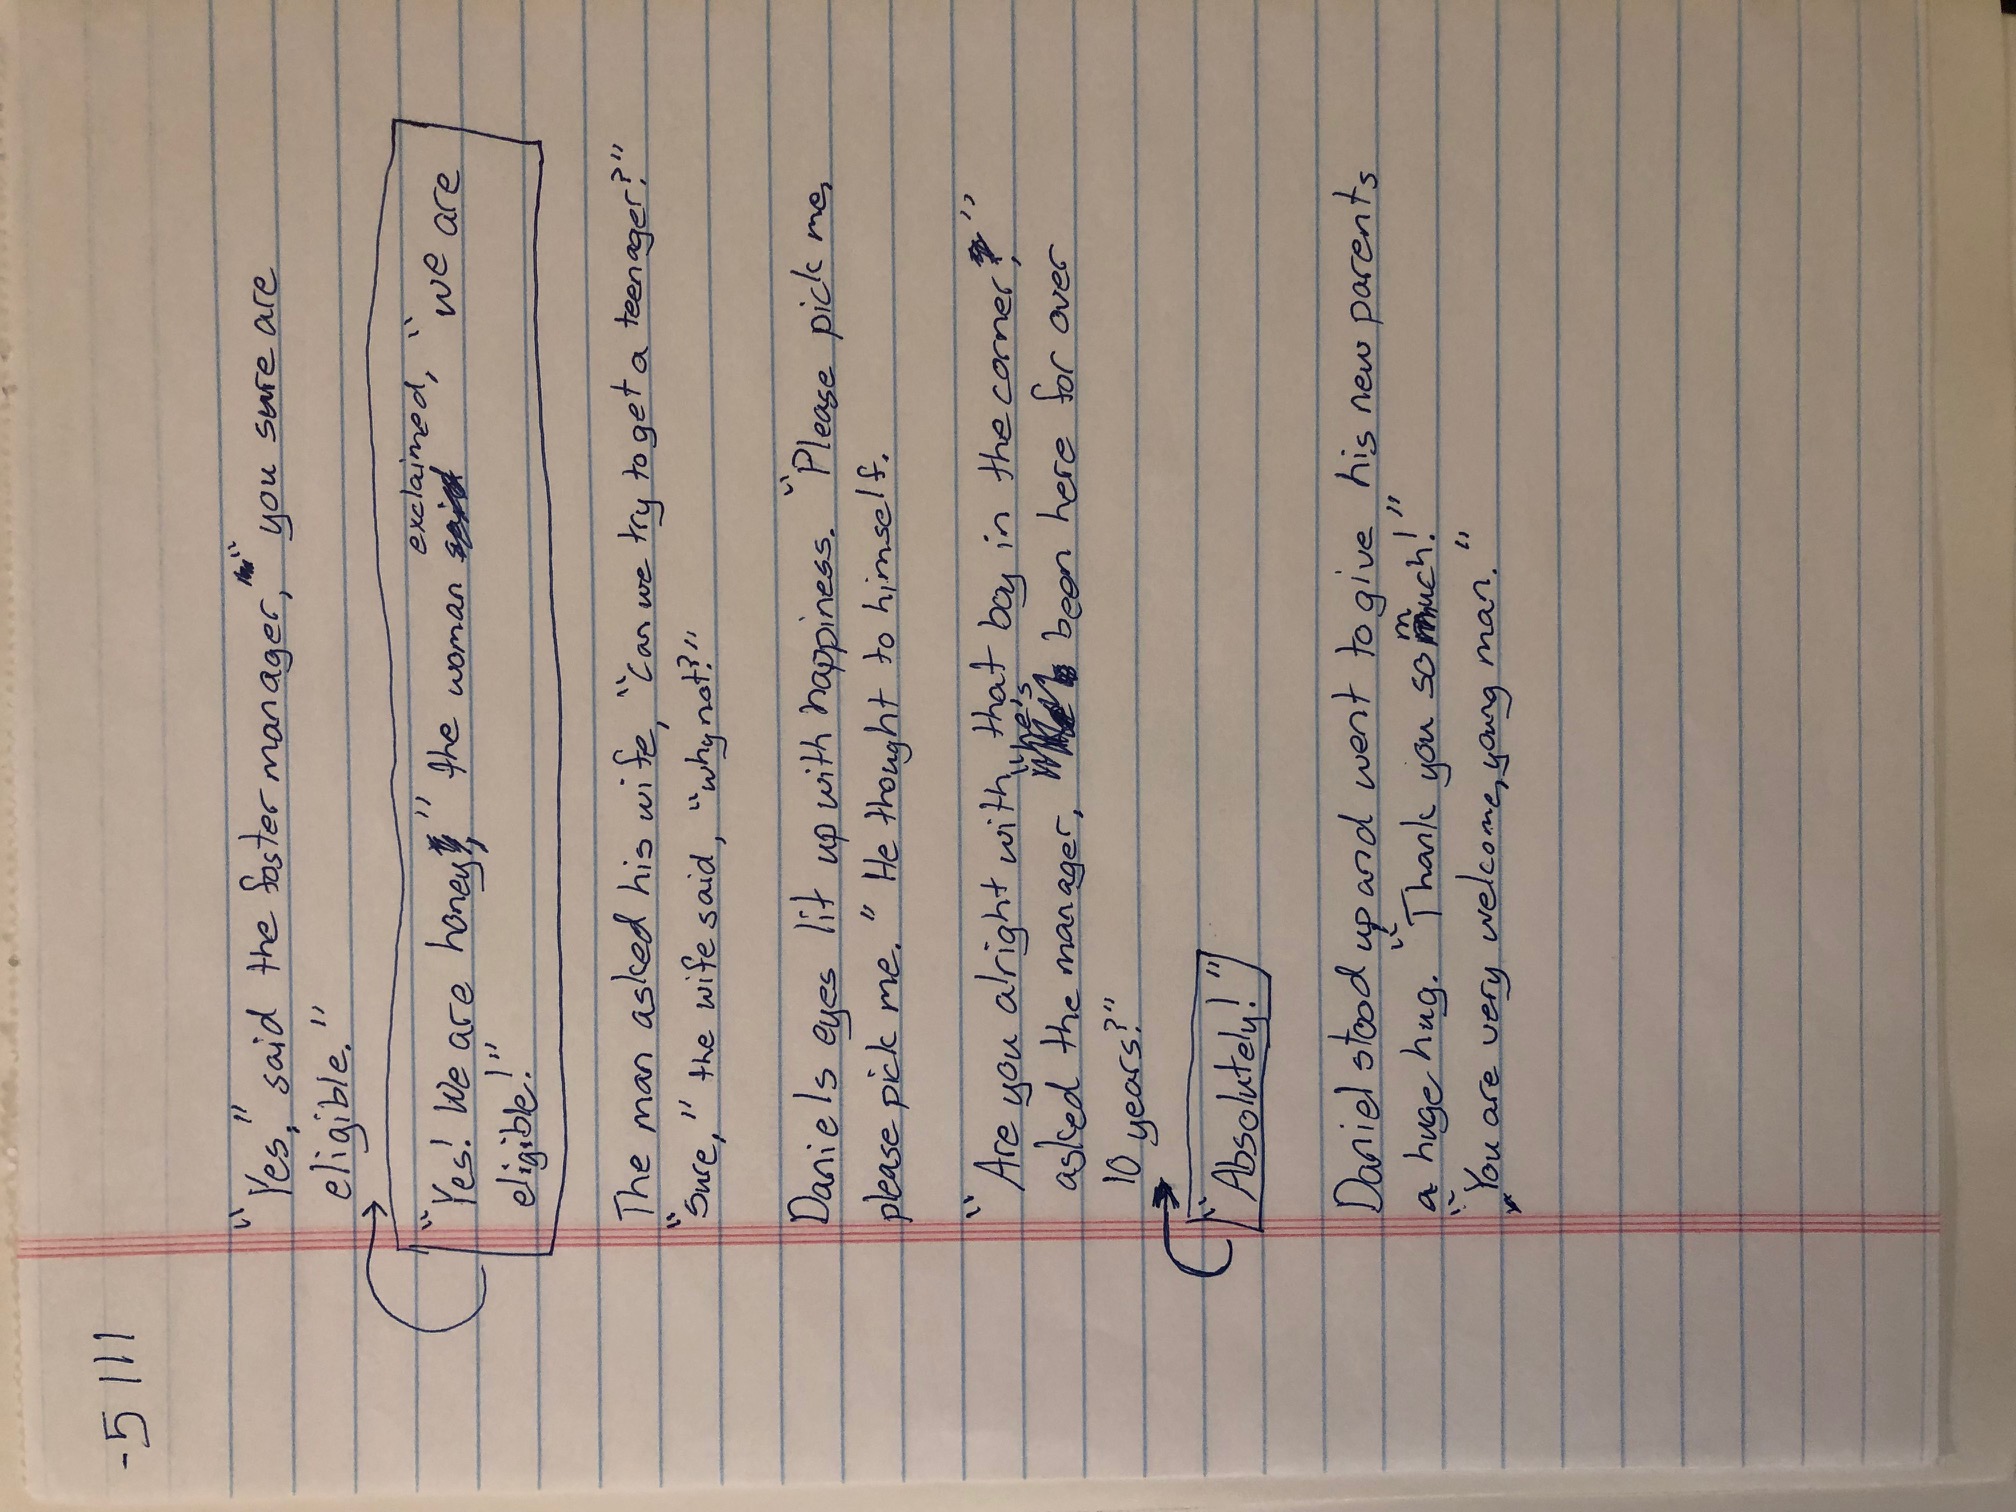 -5 111
"Yes," said the foster manager, "you sure are
eligible."
"Yes! We are honey," the woman exclaimed, "we are
eligible!"
The man asked his wife, "Can we try to get a teenager?"
"Sure," the wife said, "why not?"
Daniels eyes lit up with happiness. "Please pick me,
please pick me." He thought to himself.
"Are you alright with that boy in the corner,"
asked the manager, "he's been here for over
10 years?"
"Absolutely!"
Daniel stood up and went to give his new parents
a huge hug. "Thank you so much!"
"You are very welcome, young man."